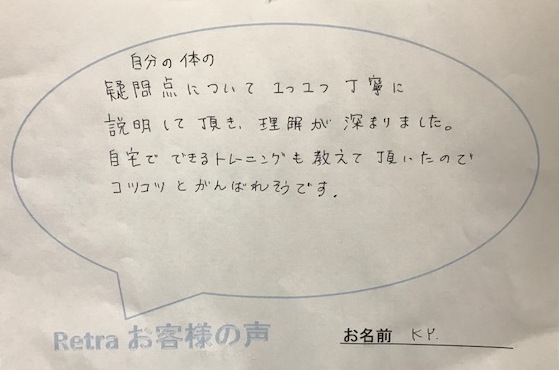 自分の体の
疑問点について 1つ1つ 丁寧に
説明して頂き、理解が深まりました。
自宅でできるトレーニングも教えて頂いたので
コツコツとがんばれそうです。
Retra お客様の声
お名前 K.Y.